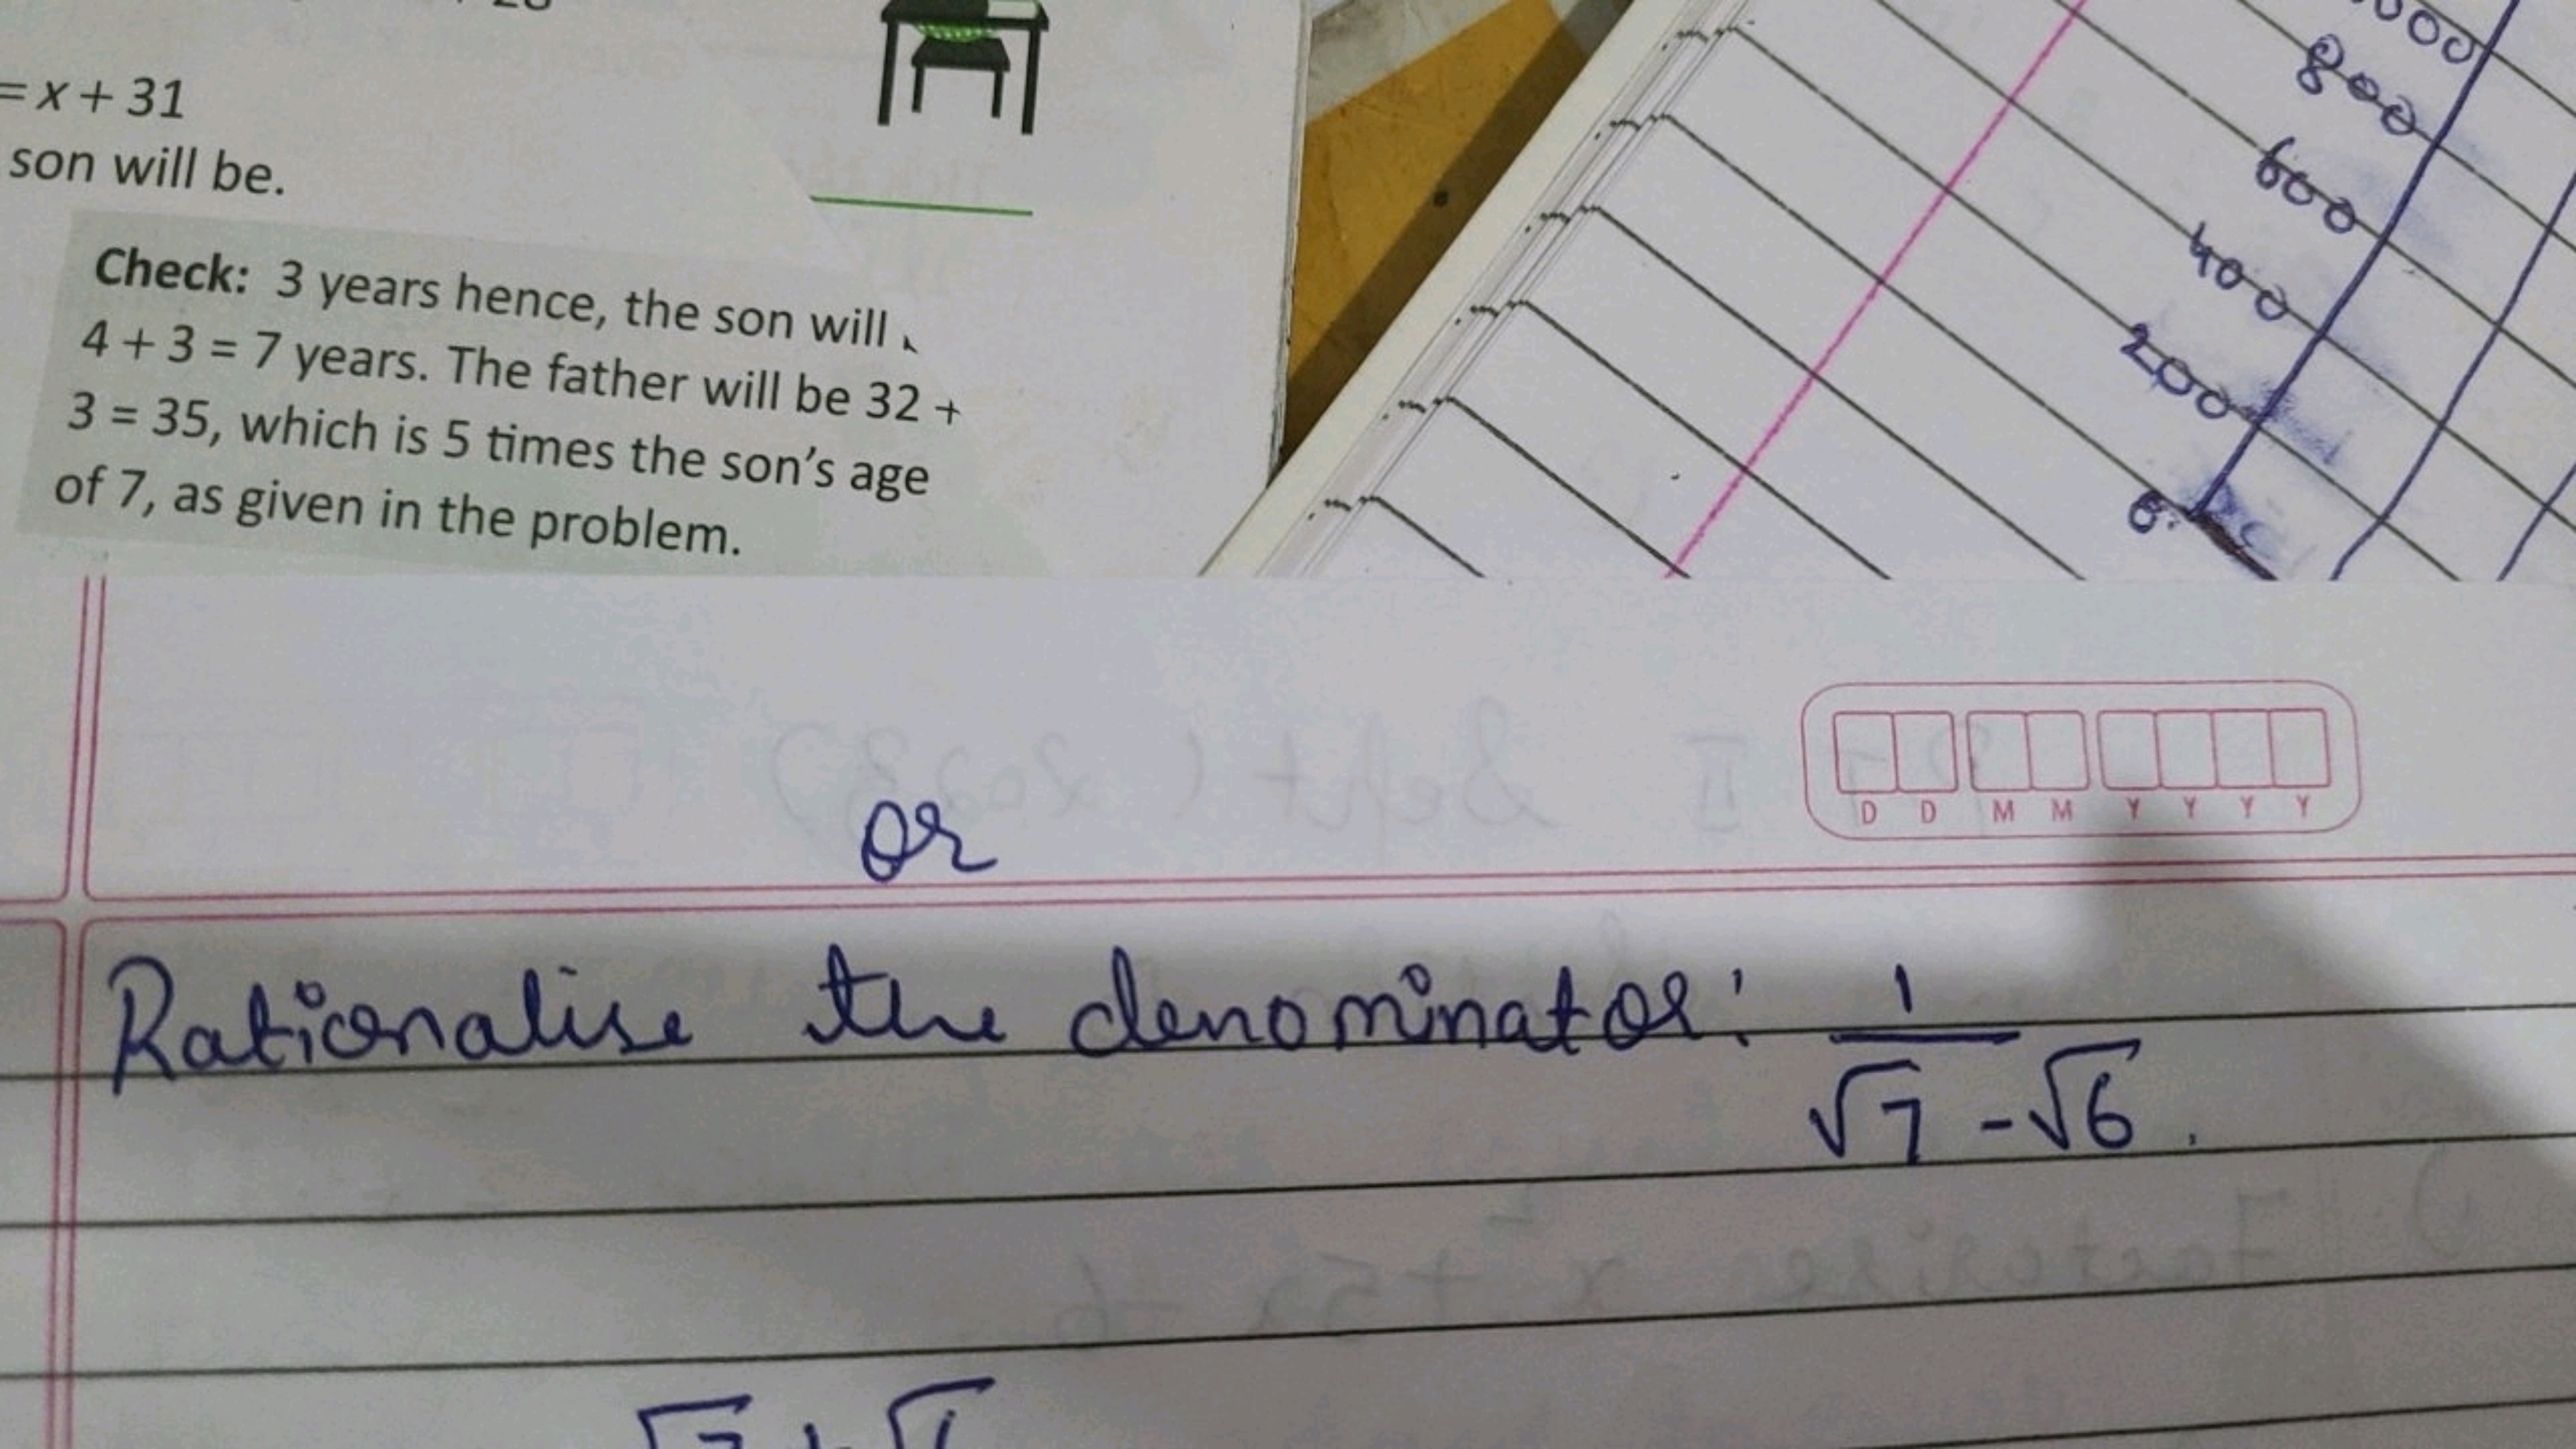 = x + 31
son will be.
Check: 3 years hence, the son will
4 + 3 = 7 years. The father will be 32 +
3 = 35, which is 5 times the son's age
of 7, as given in the problem.
800
600
400
200
0
D D M M Y Y Y Y
or
Rationalise the denominator: 1
√7 - √6.